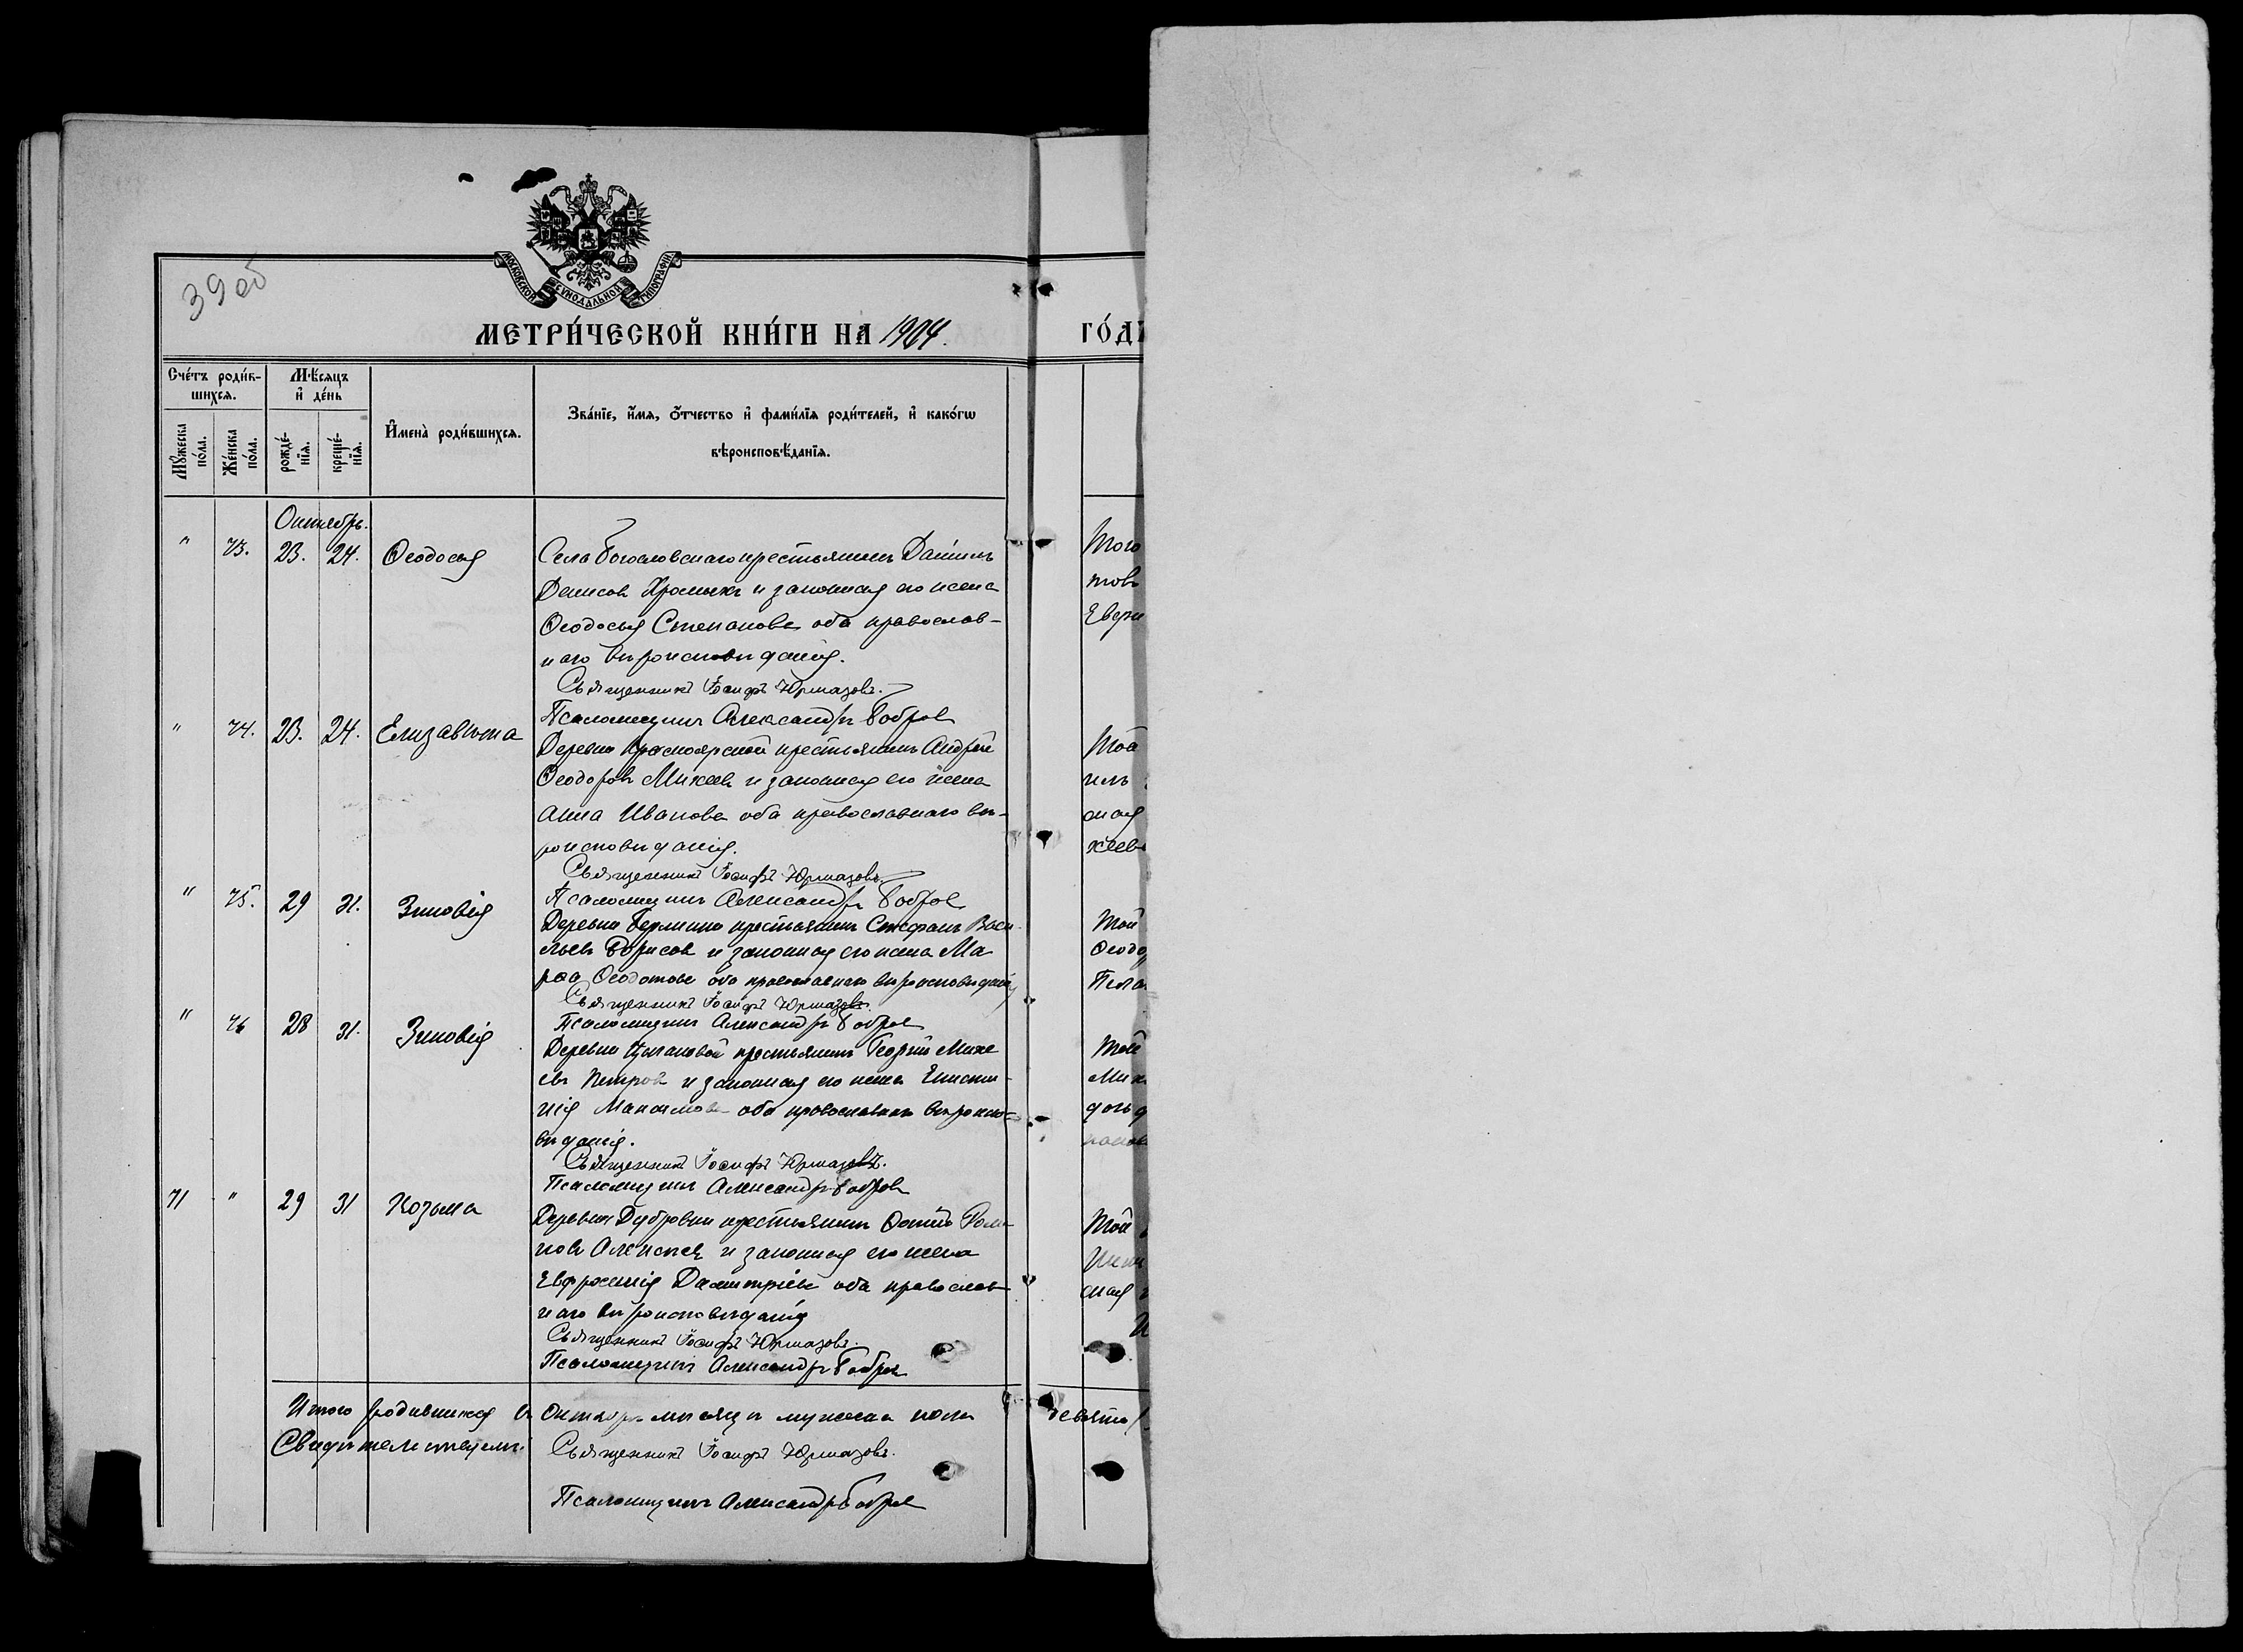 39 об
МОСКОВСКОЙ СѴНОДАЛЬНОЙ ТИПОГРАФІИ
МЕТРИ́ЧЕСКОЙ КНИ́ГИ НА 1904. ГО́ДЪ
Сче́тъ роди́вшихся.
Мѣ́сяцъ и де́нь
Имена̀ роди́вшихся.
Зва́нїе, и́мя, о́тчество и фами́лїя роди́телей, и како́гѡ
вѣроисповѣ́данїя.
Му́жеска по́ла.
Же́нска по́ла.
рожде́нїя.
креще́нїя.
Октябрь.
" 73. 23. 24. Ѳеодосія Села Богословскаго крестьянинъ Даніилъ Того
Денисовъ Хромыхъ и законная его жена
Ѳеодосья Степанова оба православ-
наго вѣроисповѣданія.
Священникъ Іосифъ Юрмазовъ.
Псаломщикъ Александръ Бобровъ
" 74. 23. 24. Елизавѣта Деревни Красноярской крестьянинъ Андрей
Ѳеодоровъ Михеевъ и законная его жена
Анна Иванова оба православнаго вѣ-
роисповѣданія.
Священникъ Іосифъ Юрмазовъ.
Псаломщикъ Александръ Бобровъ
" 75. 29 31. Зиновія Деревни крестьянинъ Стефанъ Васи-
льевъ Борисовъ и законная его жена Ма-
рѳа Ѳеодотова оба православнаго вѣроисповѣданія
Священникъ Іосифъ Юрмазовъ.
Псаломщикъ Александръ Бобровъ
" 76 28 31. Зиновія Деревни крестьянинъ Георгій Михе-
евъ Петровъ и законная его жена
нія Максимова оба православнаго вѣроиспо-
вѣданія.
Священникъ Іосифъ Юрмазовъ.
Псаломщикъ Александръ Бобровъ
71 " 29 31 Козьма Деревни Дубровки крестьянинъ
новъ Алексѣевъ и законная его жена
Евфросинія Димитріева оба православ-
наго вѣроисповѣданія
Священникъ Іосифъ Юрмазовъ.
Псаломщикъ Александръ Бобровъ
Итого родившихся въ Октябрѣ мѣсяцѣ мужеска пола
Свидѣтельствуемъ: Священникъ Іосифъ Юрмазовъ.
Псаломщикъ Александръ Бобровъ